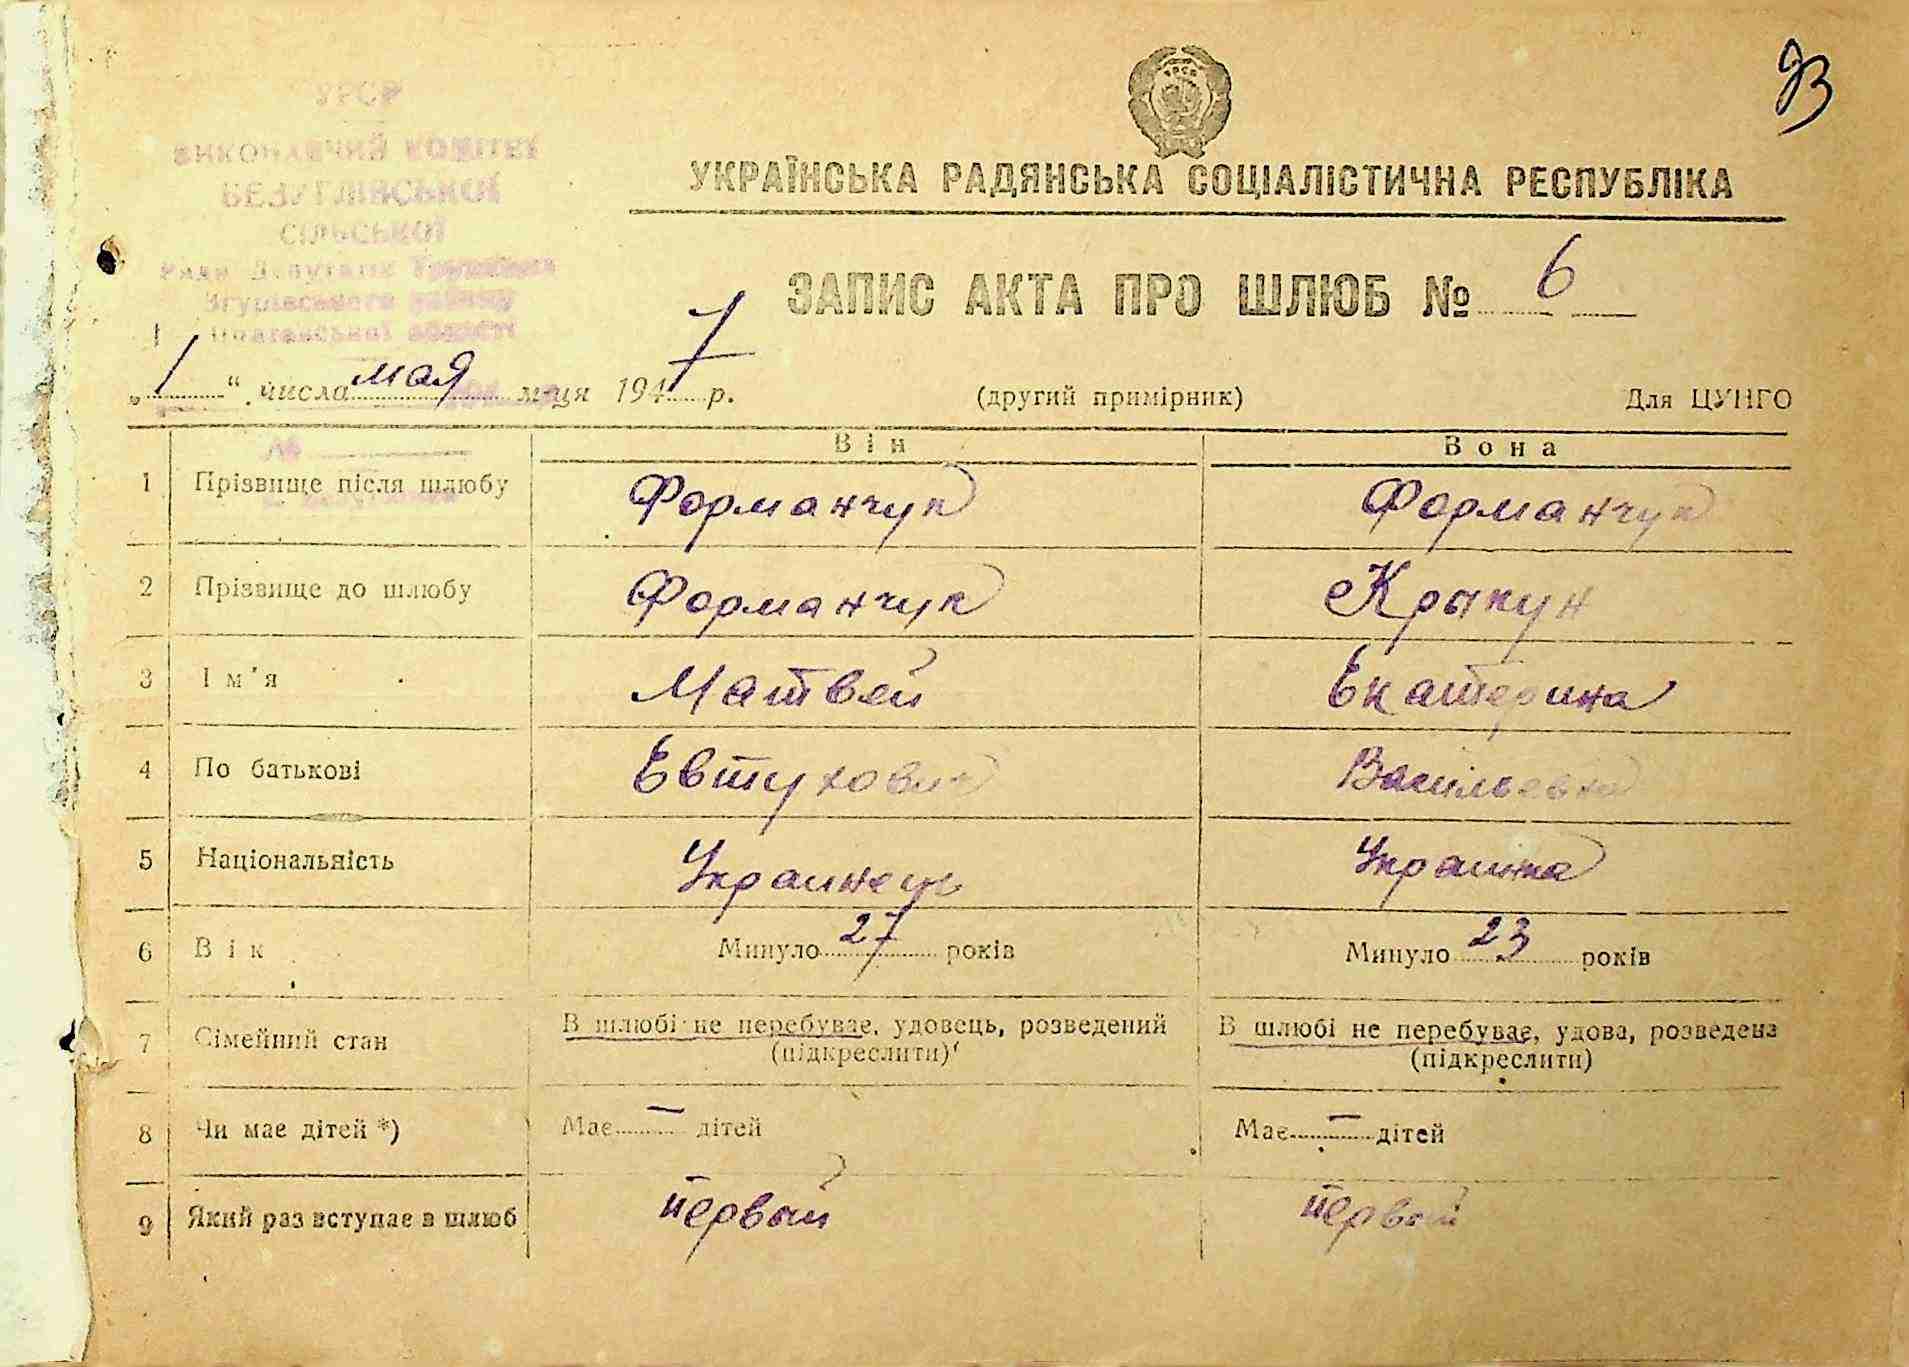 93
УРСР
ВИКОНАВЧИЙ КОМІТЕТ
БЕЗУГЛІВСЬКОЇ
СІЛЬСЬКОЇ
Ради Депутатів Трудящих
Згурівського району
Полтавської області
УКРАЇНСЬКА РАДЯНСЬКА СОЦІАЛІСТИЧНА РЕСПУБЛІКА
ЗАПИС АКТА ПРО ШЛЮБ № 6
„1“ числа мая м-ця 1947 р.
(другий примірник)
Для ЦУНГО
№
Він
Вона
1 Прізвище після шлюбу Форманчук Форманчук
2 Прізвище до шлюбу Форманчук Крыкун
3 Ім'я Матвей Екатерина
4 По батькові Евтухович Васильевна
5 Національність Украинець Украинка
6 Вік Минуло 27 років Минуло 23 років
7 Сімейний стан В шлюбі не перебуває, удовець, розведений В шлюбі не перебуває, удова, розведена
(підкреслити) (підкреслити)
8 Чи має дітей *) Має — дітей Має — дітей
9 Який раз вступає в шлюб первый первый